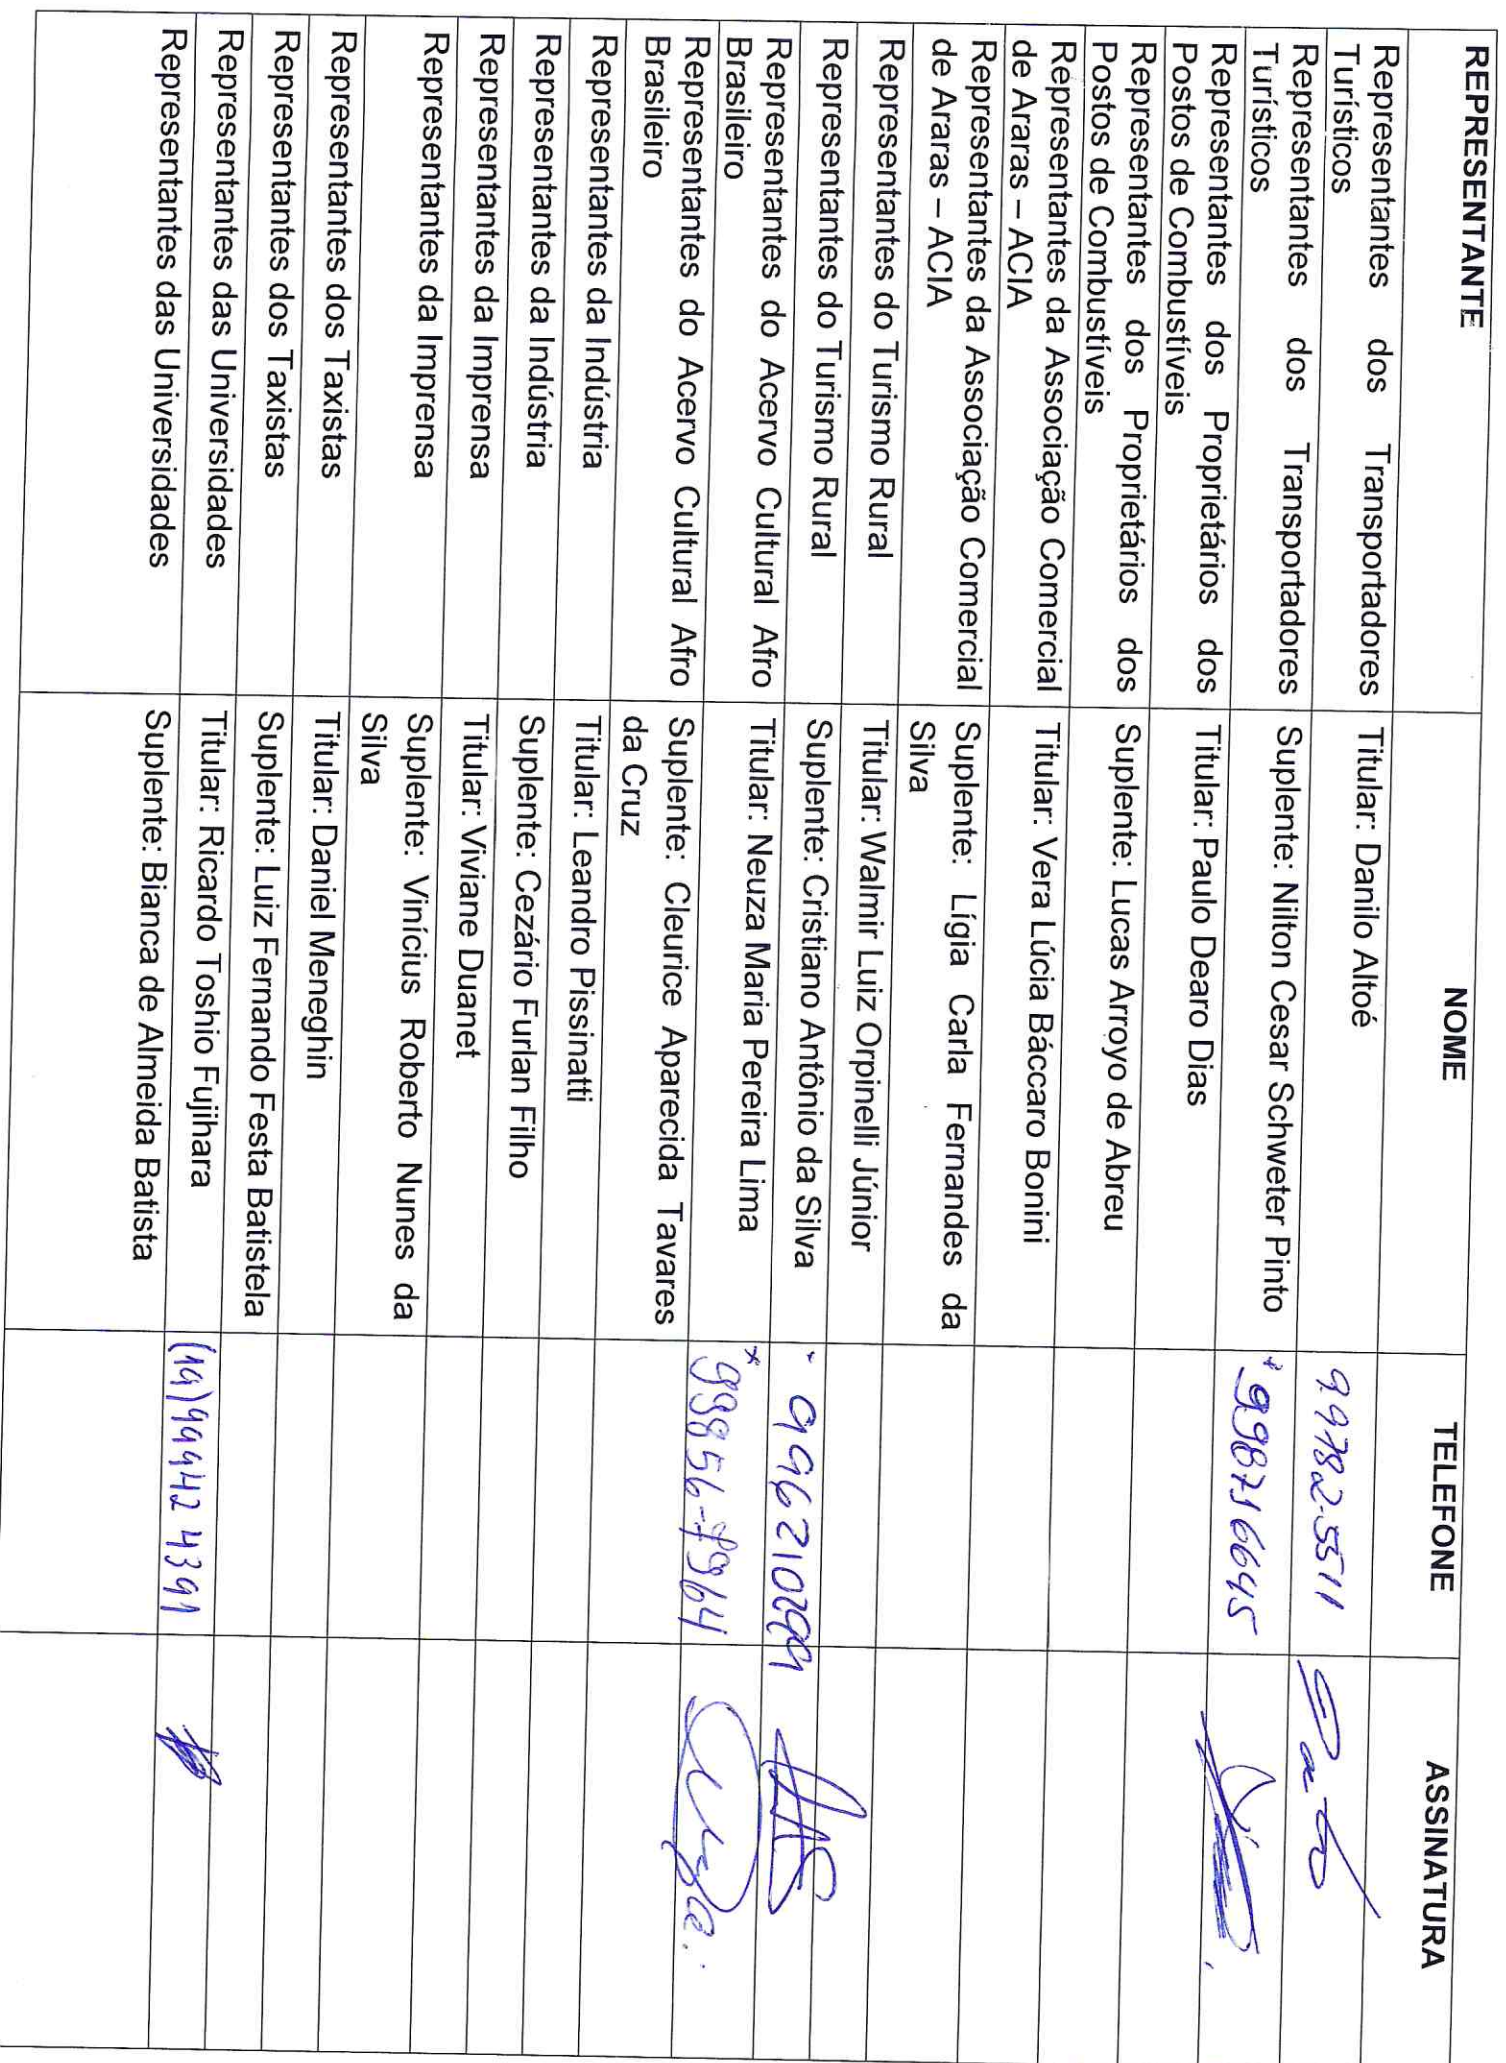 REPRESENTANTE NOME TELEFONE ASSINATURA
Representantes dos Transportadores Titular: Danilo Altoé 99782-5511
Turísticos
Representantes dos Transportadores Suplente: Nilton Cesar Schweter Pinto * 998716645
Turísticos
Representantes dos Proprietários dos Titular: Paulo Dearo Dias
Postos de Combustíveis
Representantes dos Proprietários dos Suplente: Lucas Arroyo de Abreu
Postos de Combustíveis
Representantes da Associação Comercial Titular: Vera Lúcia Báccaro Bonini
de Araras – ACIA
Representantes da Associação Comercial Suplente: Lígia Carla Fernandes da
de Araras – ACIA Silva
Representantes do Turismo Rural Titular: Walmir Luiz Orpinelli Júnior
Representantes do Turismo Rural Suplente: Cristiano Antônio da Silva * 996210299
Representantes do Acervo Cultural Afro Titular: Neuza Maria Pereira Lima * 99856-7964
Brasileiro
Representantes do Acervo Cultural Afro Suplente: Cleurice Aparecida Tavares
Brasileiro da Cruz
Representantes da Indústria Titular: Leandro Pissinatti
Representantes da Indústria Suplente: Cezário Furlan Filho
Representantes da Imprensa Titular: Viviane Duanet
Representantes da Imprensa Suplente: Vinícius Roberto Nunes da
Silva
Representantes dos Taxistas Titular: Daniel Meneghin
Representantes dos Taxistas Suplente: Luiz Fernando Festa Batistela
Representantes das Universidades Titular: Ricardo Toshio Fujihara (19)99942 4391
Representantes das Universidades Suplente: Bianca de Almeida Batista